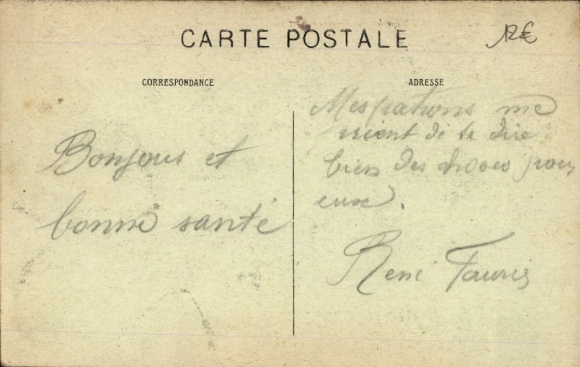 CARTE POSTALE
12€
CORRESPONDANCE
ADRESSE
Bonjour et
bonne santé
Mes patrons me
prient de te dire
bien des choses pour
eux.
René Fauris